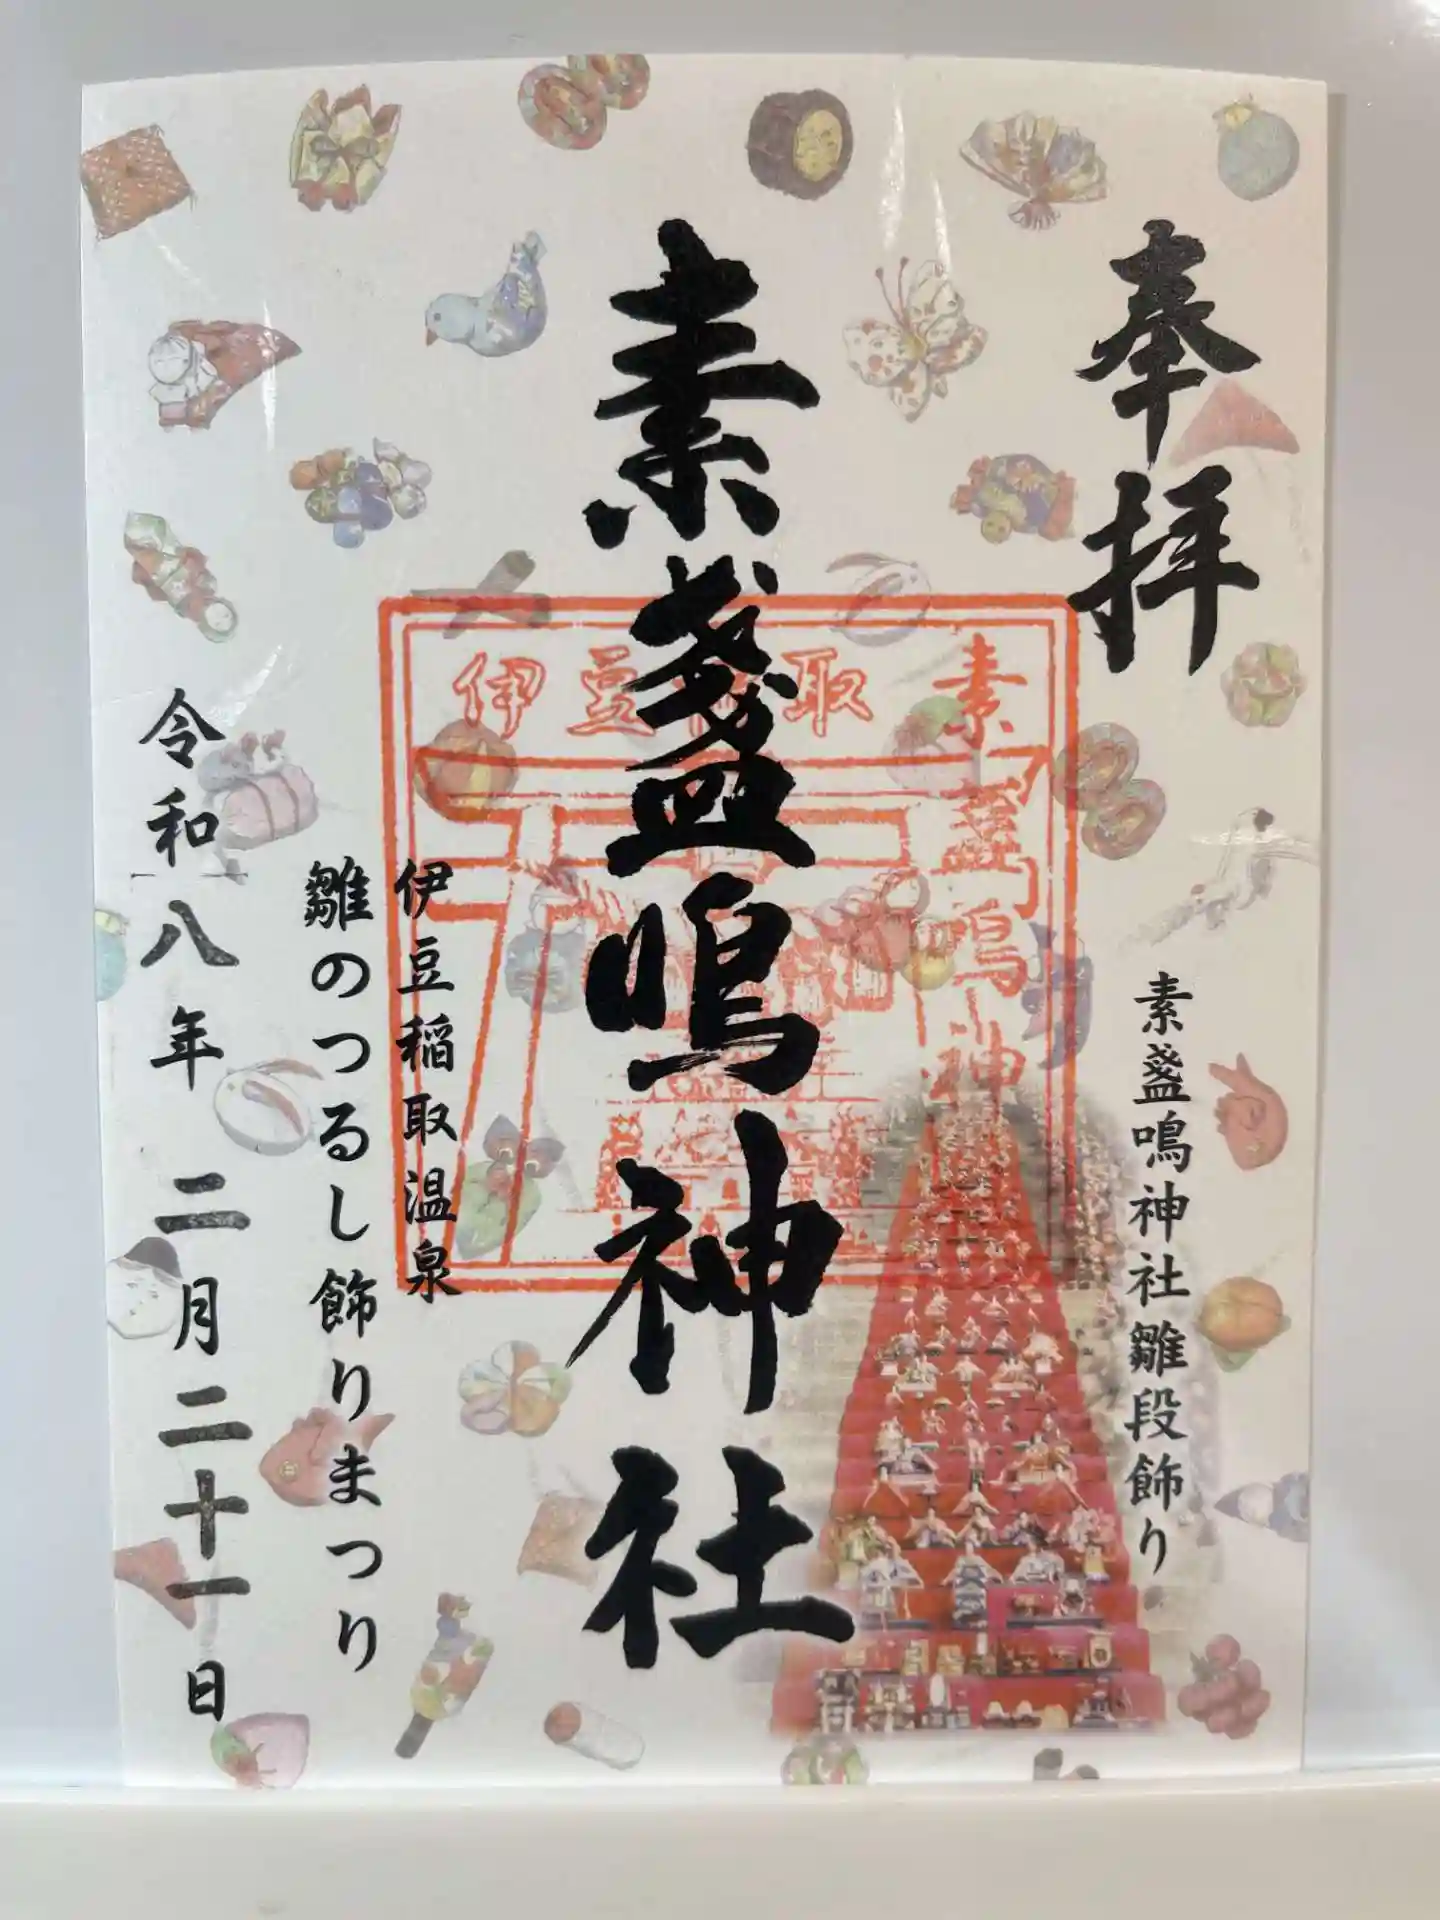 奉拝
素盞鳴神社雛段飾り
素盞鳴神社
伊豆稲取
素盞鳴神
伊豆稲取温泉
雛のつるし飾りまつり
令和八年 二月二十一日